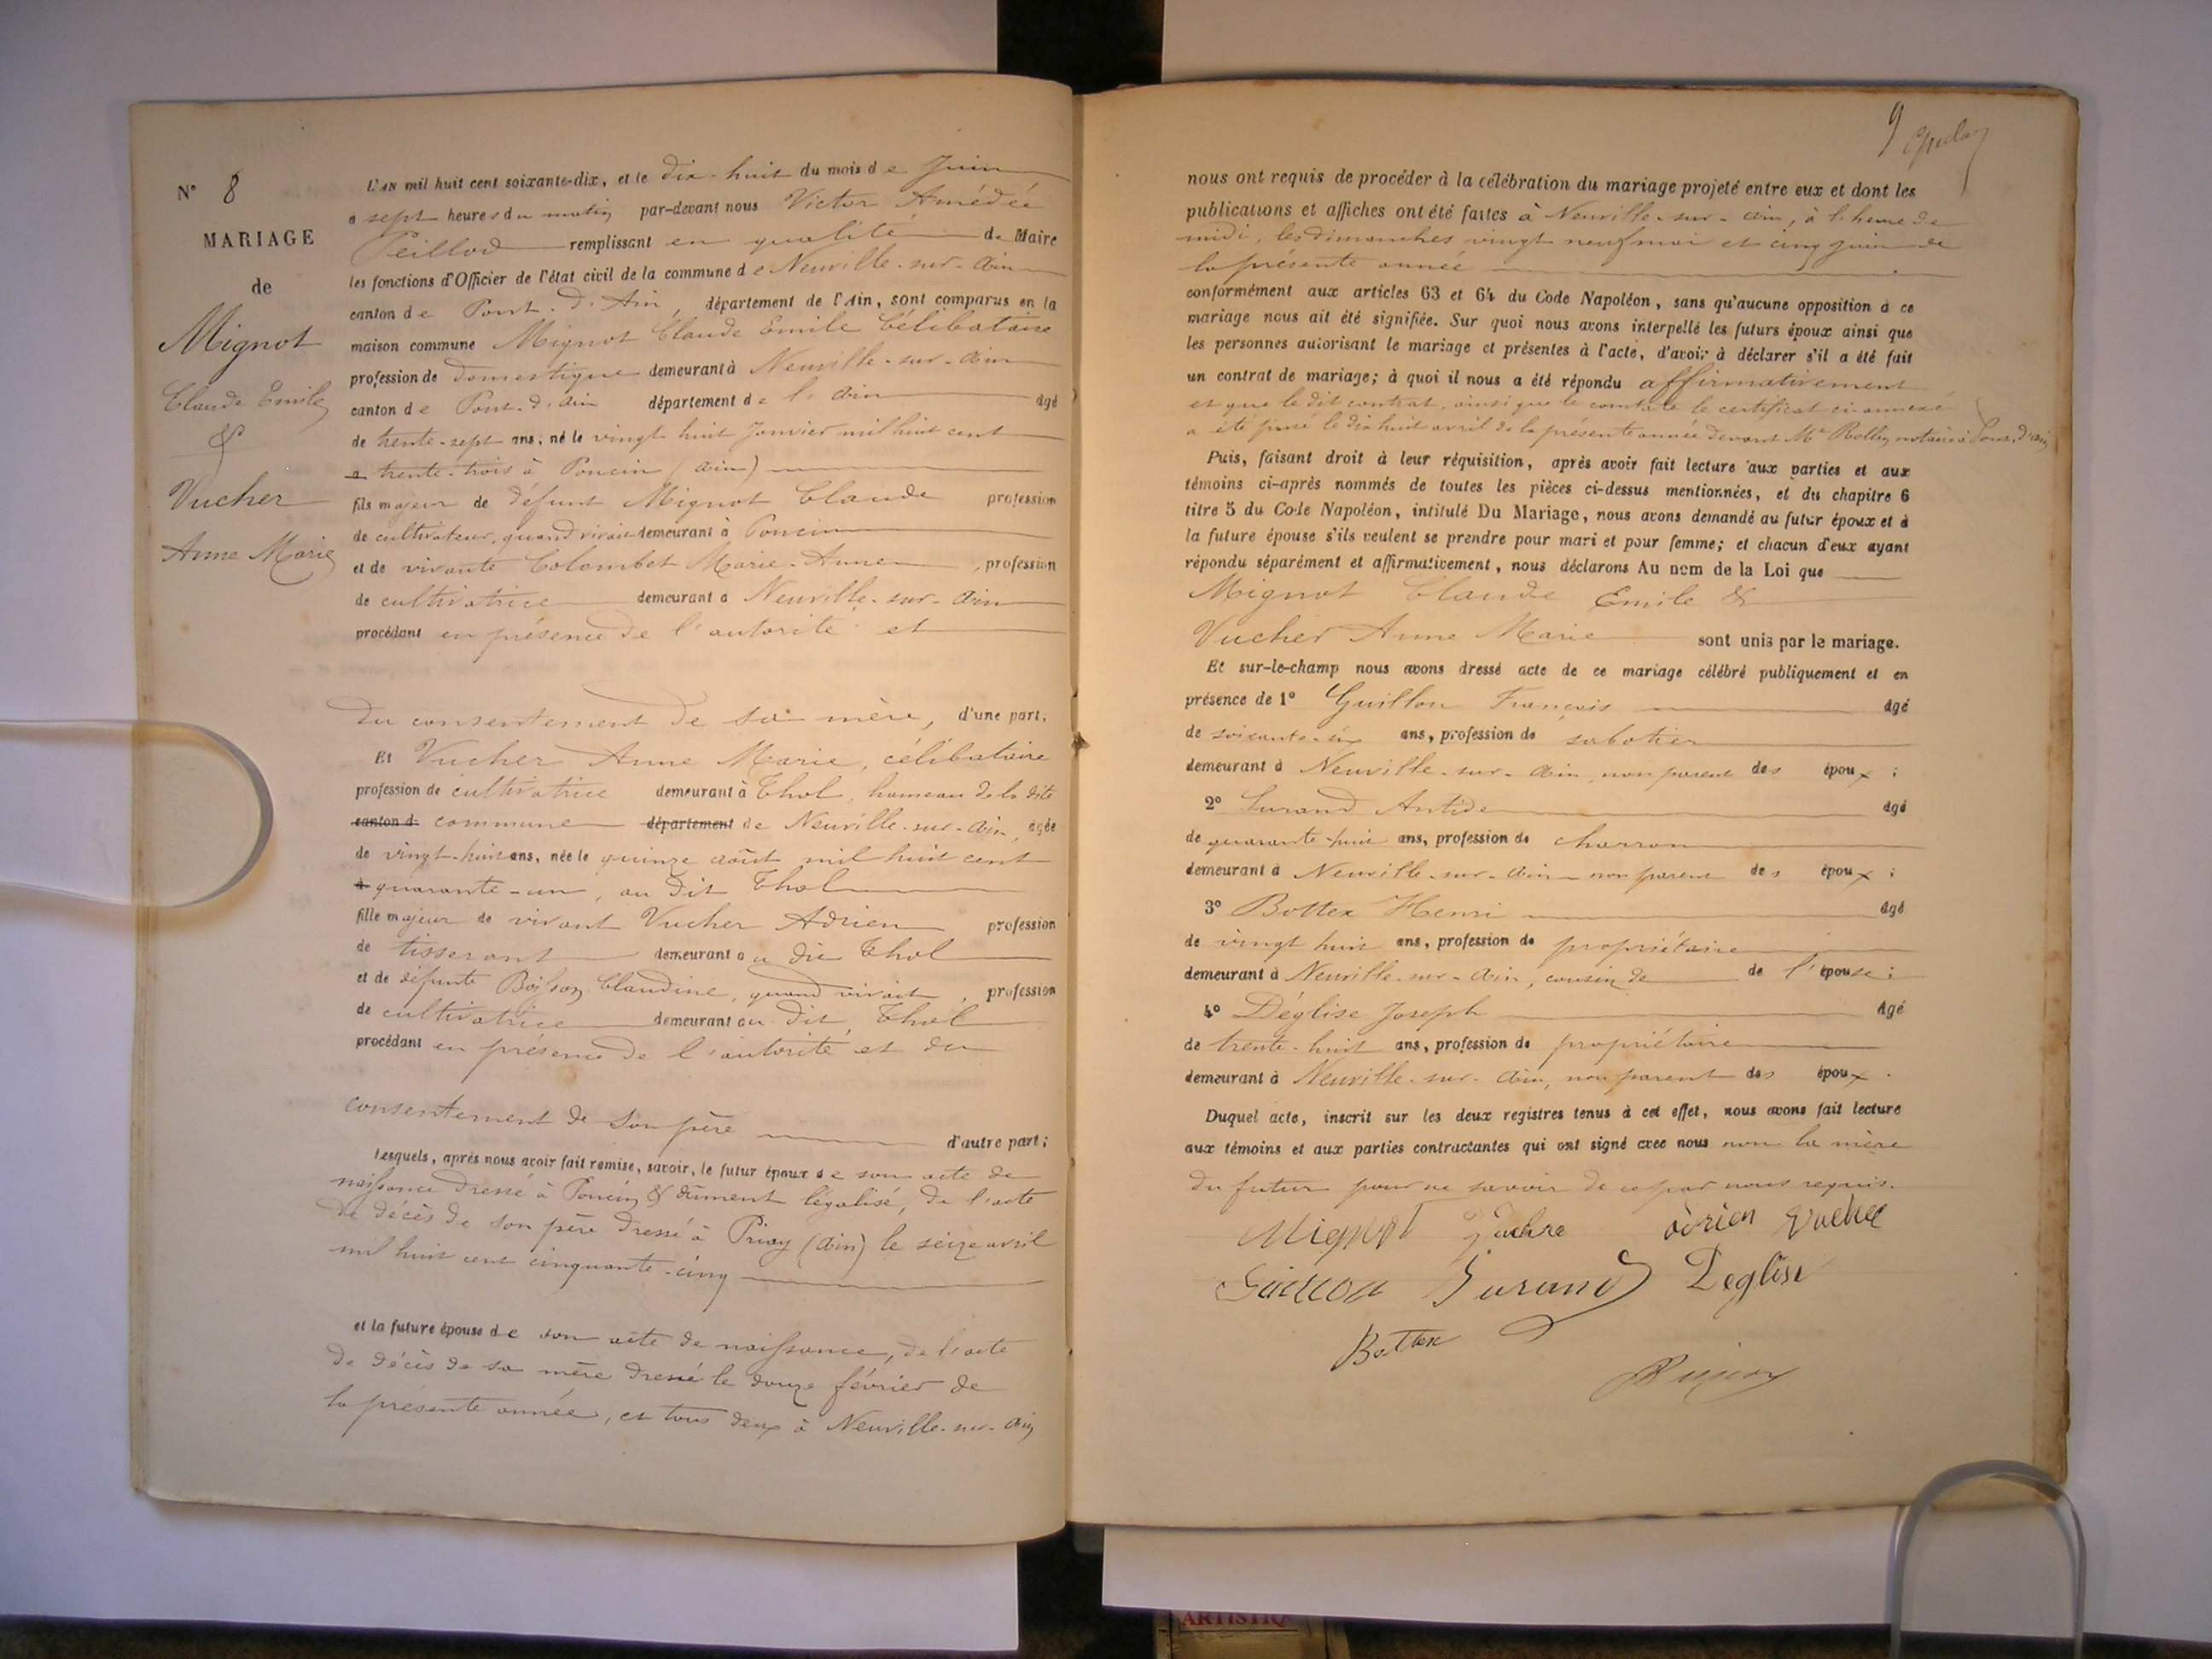 N° 8
MARIAGE
de
Mignot
Claude Emile
&
Vucher
Anne Marie
L'AN mil huit cent soixante-dix, et le dix-huit du mois de Juin
à sept heures du matin par-devant nous Victor Amédée
Peillod remplissant en qualité de Maire
les fonctions d'Officier de l'état civil de la commune de Neuville-sur-Ain
canton de Pont-d'Ain, département de l'Ain, sont comparus en la
maison commune Mignot Claude Emile Célibataire
profession de domestique demeurant à Neuville-sur-Ain
canton de Pont-d'Ain département de l'Ain âgé
de trente-sept ans, né le vingt huit Janvier mil huit cent
à trente-trois à Poncin (Ain)
fils majeur de défunt Mignot Claude profession
de cultivateur, quand vivait demeurant à Poncin
et de vivante Colombet Marie-Anne, profession
de cultivatrice demeurant à Neuville-sur-Ain
procédant en présence de l'autorité et
du consentement de sa mère, d'une part;
Et Vucher Anne Marie, célibataire
profession de cultivatrice demeurant à Thol, hameau de la dite
canton d commune département de Neuville-sur-Ain, âgée
de vingt-huit ans, née le quinze août mil huit cent
à quarante-un, au dit Thol
fille majeur de vivant Vucher Adrien profession
de tisserant demeurant au dit Thol
et de défunte Boisson Claudine, quand vivait, profession
de cultivatrice demeurant au dit Thol
procédant en présence de l'autorité et du
consentement de son père d'autre part;
Lesquels, après nous avoir fait remise, savoir, le futur époux de son acte de
naissance dressé à Poncin & dûment légalisé, de l'acte
de décès de son père dressé à Priay (Ain) le seize avril
mil huit cent cinquante-cinq
et la future épouse de son acte de naissance, de l'acte
de décès de sa mère dressé le douze février de
la présente année, et tous deux à Neuville-sur-Ain
9
nous ont requis de procéder à la célébration du mariage projeté entre eux et dont les
publications et affiches ont été faites à Neuville-sur-Ain, à l'heure de
midi, les dimanches vingt neuf mai et cinq juin de
la présente année
conformément aux articles 63 et 64 du Code Napoléon, sans qu'aucune opposition à ce
mariage nous ait été signifiée. Sur quoi nous avons interpellé les futurs époux ainsi que
les personnes autorisant le mariage et présentes à l'acte, d'avoir à déclarer s'il a été fait
un contrat de mariage; à quoi il nous a été répondu affirmativement
et que le dit contrat, ainsi que le constate le certificat ci-annexé
a été passé le dix huit avril de la présente année devant Me Rollin notaire à Pont-d'Ain
Puis, faisant droit à leur réquisition, après avoir fait lecture aux parties et aux
témoins ci-après nommés de toutes les pièces ci-dessus mentionnées, et du chapitre 6
titre 5 du Code Napoléon, intitulé Du Mariage, nous avons demandé au futur époux et à
la future épouse s'ils veulent se prendre pour mari et pour femme; et chacun d'eux ayant
répondu séparément et affirmativement, nous déclarons Au nom de la Loi que
Mignot Claude Emile &
Vucher Anne Marie sont unis par le mariage.
Et sur-le-champ nous avons dressé acte de ce mariage célébré publiquement et en
présence de 1° Guillon François âgé
de ans, profession de sabotier
demeurant à Neuville-sur-Ain, non parent des époux;
2° Durand Antide âgé
de quarante-huit ans, profession de charron
demeurant à Neuville-sur-Ain non parent des époux;
3° Bottex Henri âgé
de vingt huit ans, profession de propriétaire
demeurant à Neuville-sur-Ain, cousin de de l'épouse;
4° Déglise Joseph âgé
de trente-huit ans, profession de propriétaire
demeurant à Neuville-sur-Ain, non parent des époux.
Duquel acte, inscrit sur les deux registres tenus à cet effet, nous avons fait lecture
aux témoins et aux parties contractantes qui ont signé avec nous non la mère
du futur pour ne savoir de ce par nous requis.
Mignot adrien vucher
Guillon Durand Deglise
Bottex
ARTISTIQ